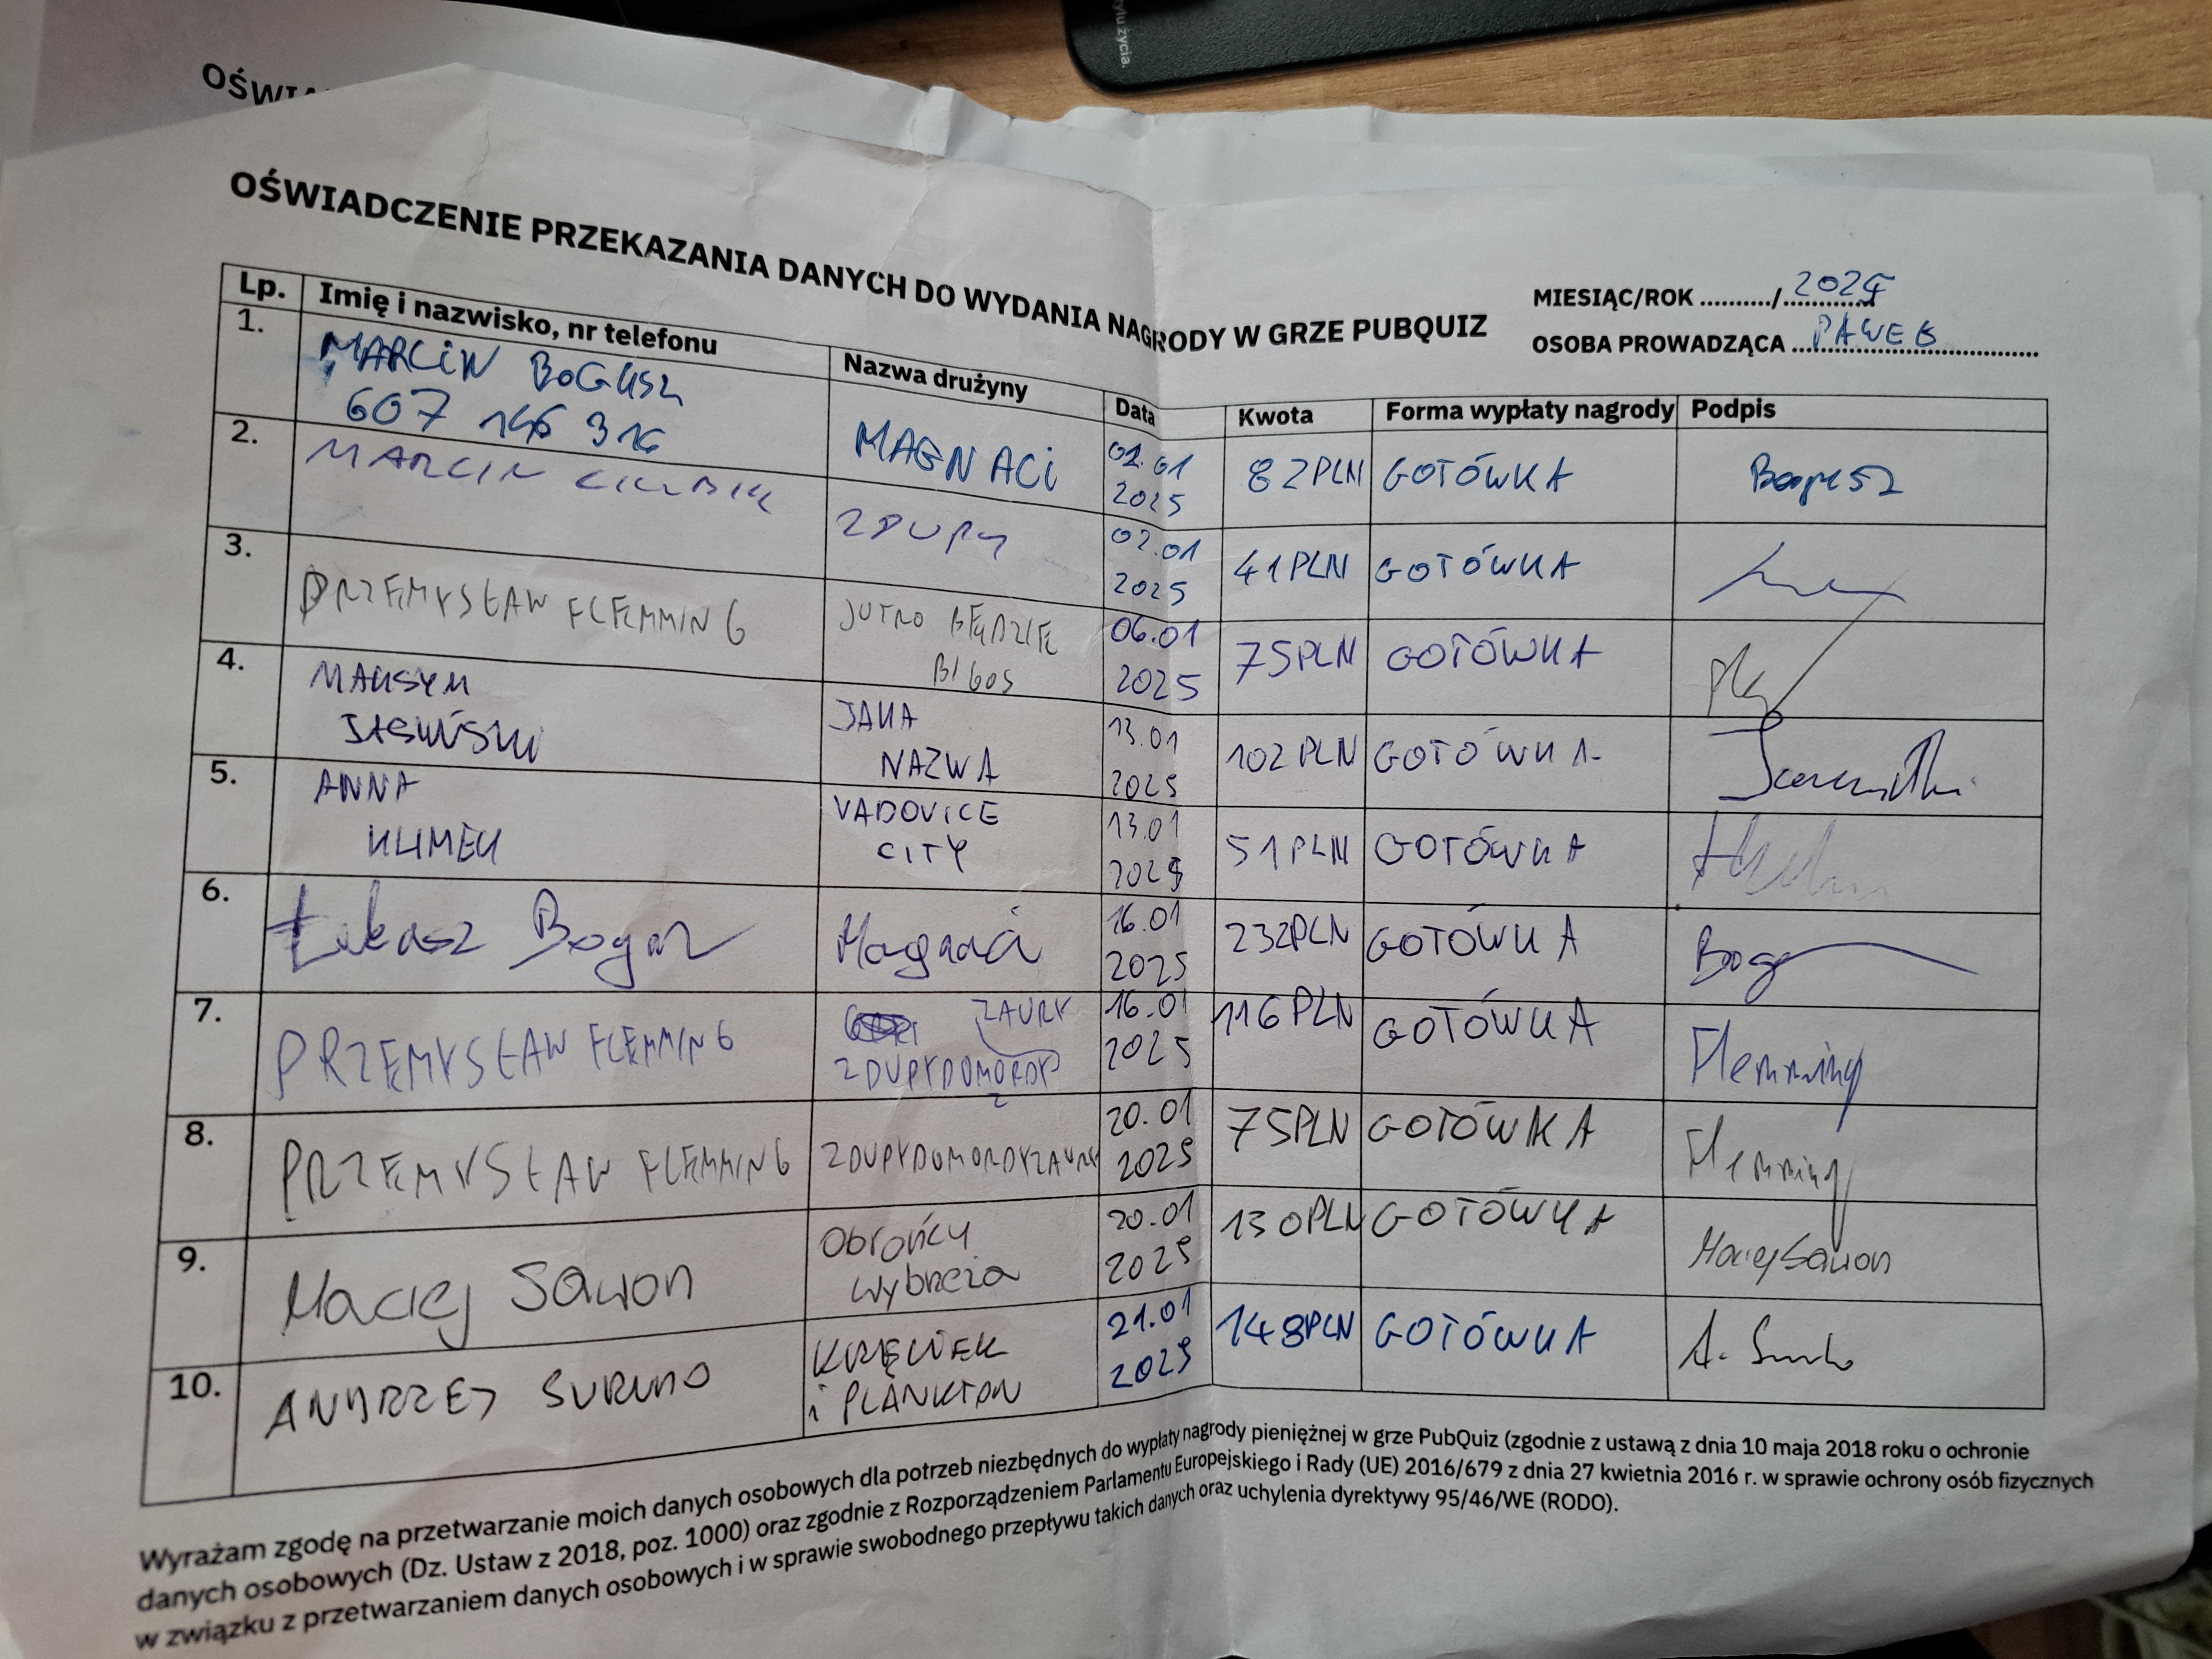 stylu życia.
OŚWIA
OŚWIADCZENIE PRZEKAZANIA DANYCH DO WYDANIA NAGRODY W GRZE PUBQUIZ
MIESIĄC/ROK ........../ 2025
OSOBA PROWADZĄCA PAWEŁ
Lp. Imię i nazwisko, nr telefonu Nazwa drużyny Data Kwota Forma wypłaty nagrody Podpis
1. MARCIN BOGUSZ
607 146 316
MAGNACI 02.01 2025 82PLN GOTÓWKA Bogusz
2. MARCIN ZDUPY 02.01 2025 41PLN GOTÓWKA
3. PRZEMYSŁAW FLEMMING JUTRO BĘDZIE BIGOS 06.01 2025 75PLN GOTÓWKA
4. MAKSYM JASIŃSKI JAKA NAZWA 13.01 2025 102PLN GOTÓWKA
5. ANNA KLIMEK VADOVICE CITY 13.01 2025 51PLN GOTÓWKA
6. Łukasz Magnaci 16.01 2025 232PLN GOTÓWKA
7. PRZEMYSŁAW FLEMMING ZDUPYDOMORDY ZAURY 16.01 2025 116PLN GOTÓWKA Flemming
8. PRZEMYSŁAW FLEMMING ZDUPYDOMORDYZAURY 20.01 2025 75PLN GOTÓWKA Flemming
9. Maciej Sawon Obrońcy wybrzeża 20.01 2025 130PLN GOTÓWKA Maciej Sawon
10. ANDRZEJ SURMO KRĘWEK i PLANKTON 21.01 2025 148PLN GOTÓWKA
Wyrażam zgodę na przetwarzanie moich danych osobowych dla potrzeb niezbędnych do wypłaty nagrody pieniężnej w grze PubQuiz (zgodnie z ustawą z dnia 10 maja 2018 roku o ochronie
danych osobowych (Dz. Ustaw z 2018, poz. 1000) oraz zgodnie z Rozporządzeniem Parlamentu Europejskiego i Rady (UE) 2016/679 z dnia 27 kwietnia 2016 r. w sprawie ochrony osób fizycznych
w związku z przetwarzaniem danych osobowych i w sprawie swobodnego przepływu takich danych oraz uchylenia dyrektywy 95/46/WE (RODO).